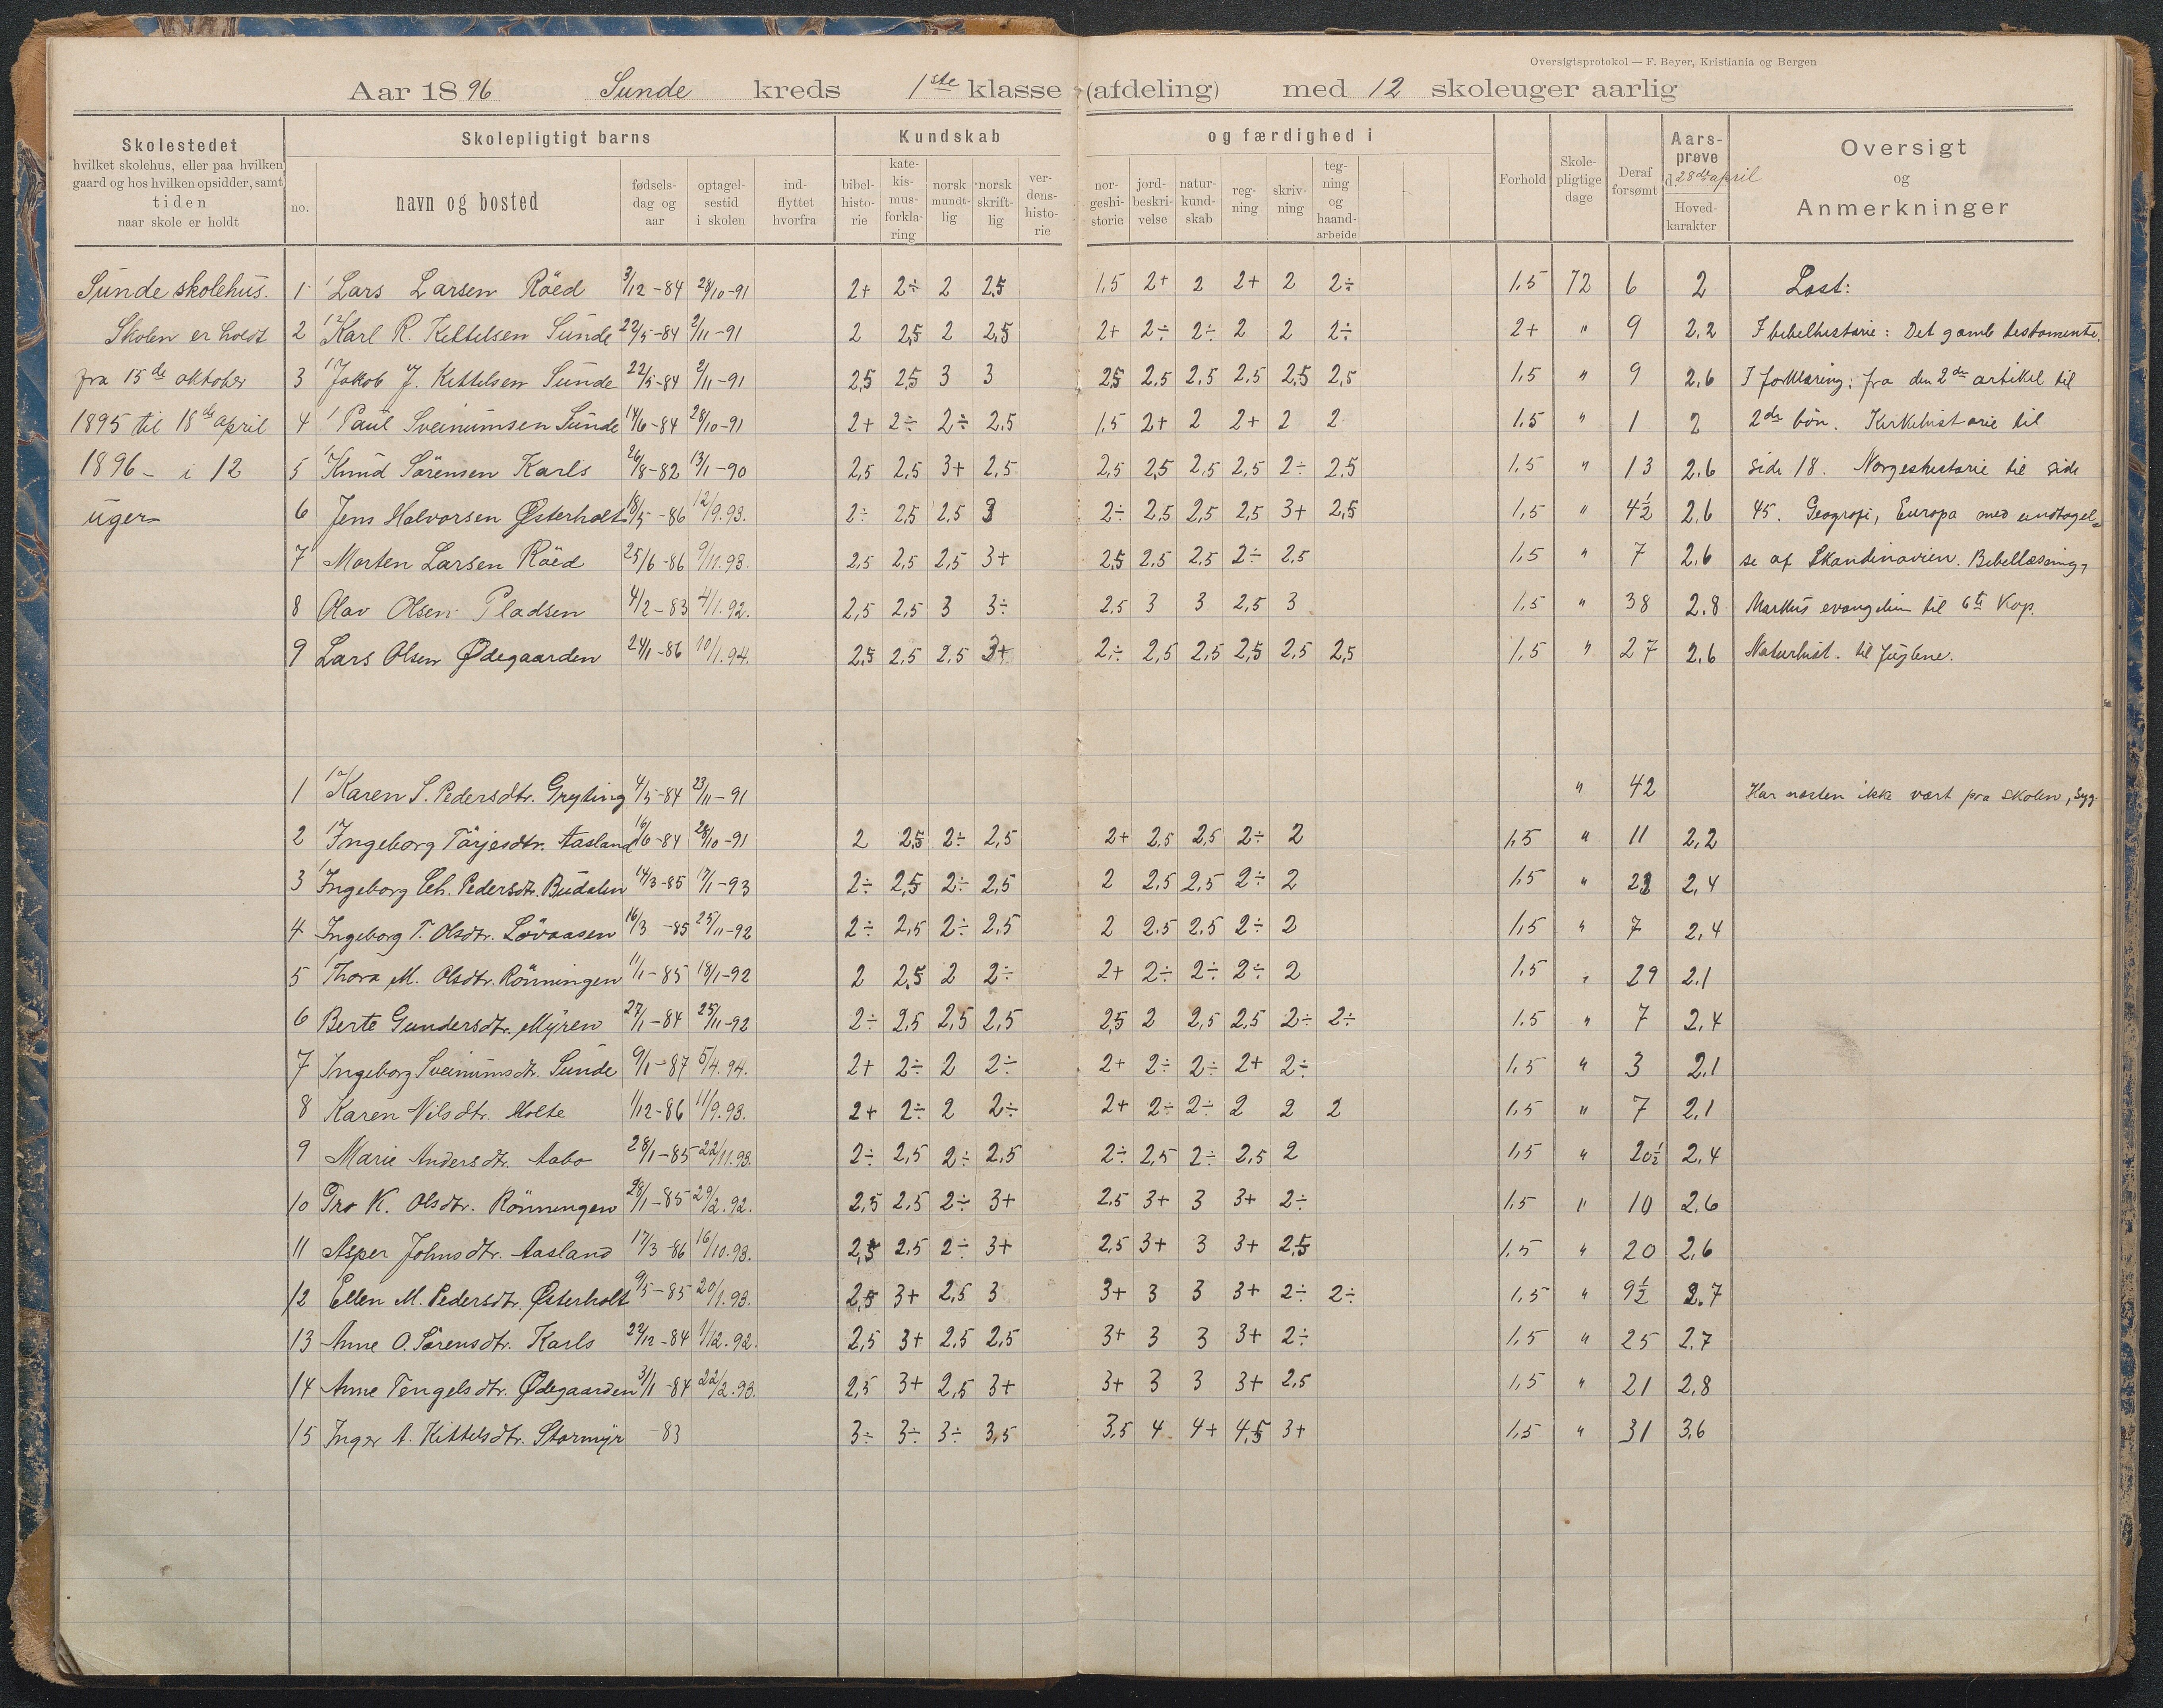 Oversigtsprotokol — F. Beyer, Kristiania og Bergen
Aar 1896 Sunde kreds 1ste klasse (afdeling) med 12 skoleuger aarlig
Skolestedet
hvilket skolehus, eller paa hvilken
gaard og hos hvilken opsidder, samt
tiden
naar skole er holdt
Skolepligtigt barns
no.
navn og bosted
fødsels-
dag og
aar
optagel-
sestid
i skolen
ind-
flyttet
hvorfra
Kundskab
bibel-
histo-
rie
kate-
kis-
mus-
forkla-
ring
norsk
mundt-
lig
norsk
skrift-
lig
ver-
dens-
histo-
rie
og færdighed i
nor-
geshi-
storie
jord-
beskri-
velse
natur-
kund-
skab
reg-
ning
skriv-
ning
teg-
ning
og
haand-
arbeide
Forhold
Skole-
pligtige
dage
Deraf
forsømt
Aars-
prøve
d. 28de april
Hoved-
karakter
Oversigt
og
Anmerkninger
Sunde skolehus.
Skolen er holdt
fra 15de oktober
1895 til 18de april
1896 - i 12
uger
1 Lars Larsen Röed 3/12-84 28/10-91 2+ 2÷ 2 2,5 1,5 2+ 2 2+ 2 2÷ 1,5 72 6 2 Læst:
2 Karl R. Kittelsen Sunde 22/5-84 2/11-91 2 2,5 2 2,5 2+ 2÷ 2÷ 2 2 2÷ 2+ " 9 2,2 I bibelhistorie: Det gamle testamente.
3 Jakob J. Kittelsen Sunde 22/5-84 2/11-91 2,5 2,5 3 3 2,5 2,5 2,5 2,5 2,5 2,5 1,5 " 9 2,6 I forklaring: fra den 2den artikel til
4 Paul Sveinumsen Sunde 14/6-84 28/10-91 2+ 2÷ 2÷ 2,5 1,5 2+ 2 2+ 2 2 1,5 " 1 2 2den bön. Kirkehistorie til
5 Knud Sörensen Karls 26/8-82 13/1-90 2,5 2,5 3+ 2,5 2,5 2,5 2,5 2,5 2÷ 2,5 1,5 " 13 2,6 side 18. Norgeshistorie til side
6 Jens Halvorsen Østerholt 18/5-86 12/9.93. 2÷ 2,5 2,5 3 2÷ 2,5 2,5 2,5 3+ 2,5 1,5 " 4½ 2,6 45. Geografi, Europa med undtagel-
7 Morten Larsen Röed 25/6-86 9/11.93. 2,5 2,5 2,5 3+ 2,5 2,5 2,5 2÷ 2,5 1,5 " 7 2,6 se af Skandinavien. Bibellæsning,
8 Olav Olsen Pladsen 4/2-83 4/1.92. 2,5 2,5 3 3÷ 2,5 3 3 2,5 3 1,5 " 38 2,8 Markus evangelium til 6te Kap.
9 Lars Olsen Ødegaarden 24/1-86 10/1.94. 2,5 2,5 2,5 3+ 2÷ 2,5 2,5 2,5 2,5 2,5 1,5 " 27 2,6 Naturhist. til fuglene.
1 Karen S. Pedersdtr. Gryting 4/5-84 23/11-91 " 42 Har næsten ikke vært pra skolen, syg.
2 Ingeborg Tärjesdtr. Aasland 16/6-84 28/10-91 2 2,5 2÷ 2,5 2+ 2,5 2,5 2÷ 2 1,5 " 11 2,2
3 Ingeborg Ch. Pedersdtr. Budalen 14/3-85 17/1-93 2÷ 2,5 2÷ 2,5 2 2,5 2,5 2÷ 2 1,5 " 2,4
4 Ingeborg T. Olsdtr. Lövaasen 16/3-85 25/11-92 2÷ 2,5 2÷ 2,5 2 2,5 2,5 2÷ 2 1,5 " 7 2,4
5 Thora M. Olsdtr. Rönningen 11/1-85 18/1-92 2 2,5 2 2÷ 2+ 2÷ 2÷ 2÷ 2 1,5 " 29 2,1
6 Berte Gundersdtr. Myren 27/1-84 25/11-92 2÷ 2,5 2,5 2,5 2,5 2 2,5 2,5 2÷ 2÷ 1,5 " 7 2,4
7 Ingeborg Sveinumsdtr. Sunde 9/1-87 5/4.94. 2+ 2÷ 2 2÷ 2+ 2÷ 2÷ 2+ 2÷ 1,5 " 3 2,1
8 Karen Nilsdtr. Holte 1/12-86 11/9.93. 2+ 2÷ 2 2÷ 2+ 2÷ 2÷ 2 2 2 1,5 " 7 2,1
9 Marie Andersdtr. Aabo 28/1-85 22/11.93. 2÷ 2,5 2÷ 2,5 2÷ 2,5 2÷ 2,5 2 1,5 " 20½ 2,4
10 Tro K. Olsdtr. Rönningen 28/1-85 29/2.92. 2,5 2,5 2÷ 3+ 2,5 3+ 3 3+ 2÷ 1,5 " 10 2,6
11 Asper Johnsdtr. Aasland 17/3-86 16/10.93. 2,5 2,5 2÷ 3+ 2,5 3+ 3 3+ 2,5 1,5 " 20 2,6
12 Ellen M. Pedersdtr. Østerholt 9/5-85 20/1.93. 2,5 3+ 2,5 3 3+ 3 3 3+ 2÷ 2÷ 1,5 " 9½ 2,7
13 Anne O. Sörensdtr. Karls 22/12-84 1/12.92. 2,5 3+ 2,5 2,5 3+ 3 3 3+ 2÷ 1,5 " 25 2,7
14 Anne Tengelsdtr. Ødegaarden 3/1-84 22/2.93. 2,5 3+ 2,5 3+ 3+ 3 3 3+ 2,5 1,5 " 21 2,8
15 Inger A. Kittelsdtr. Stormyr -83 3÷ 3÷ 3÷ 3,5 3,5 4 4+ 4,5 3+ 1,5 " 31 3,6